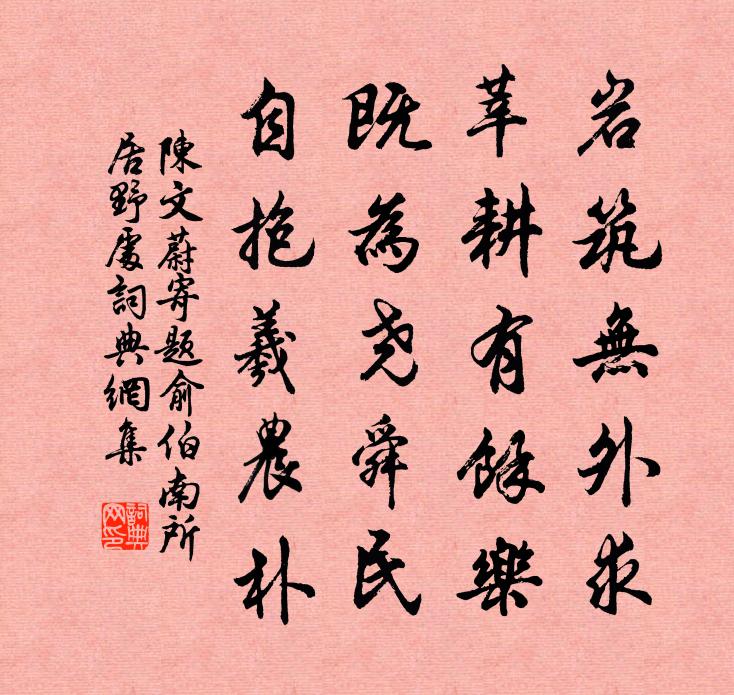 岩筑無外求
莘耕有餘樂
既為尧舜民
自抱羲農朴
陳文蔚寄題俞伯南所
居野處詞典網集
詞典网印